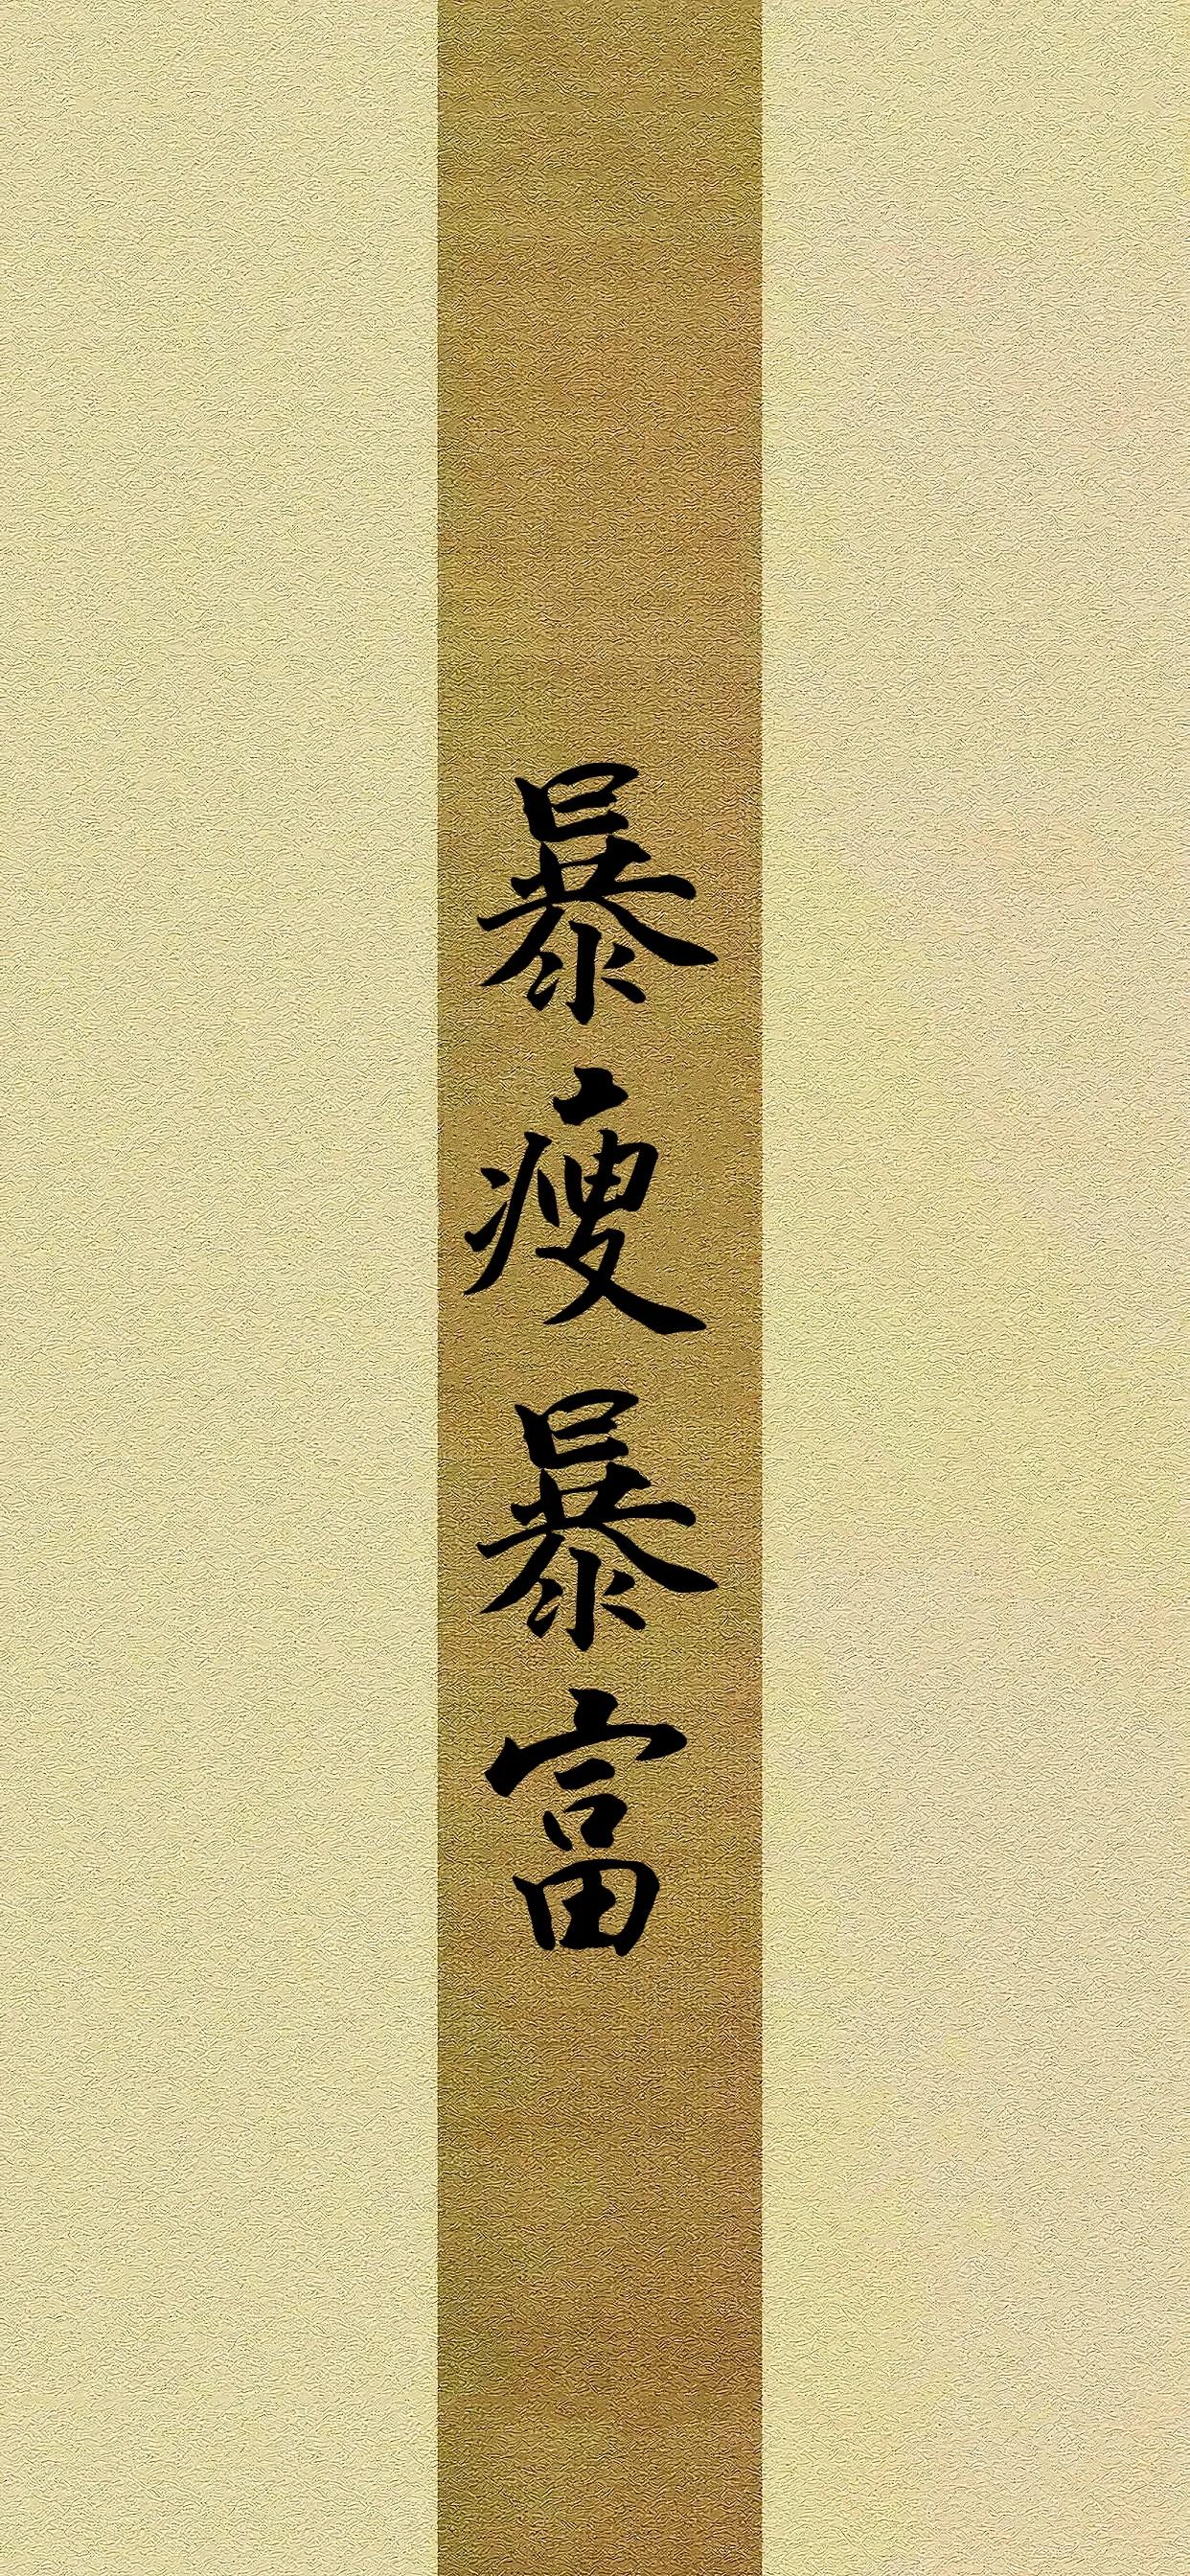 暴瘦暴富